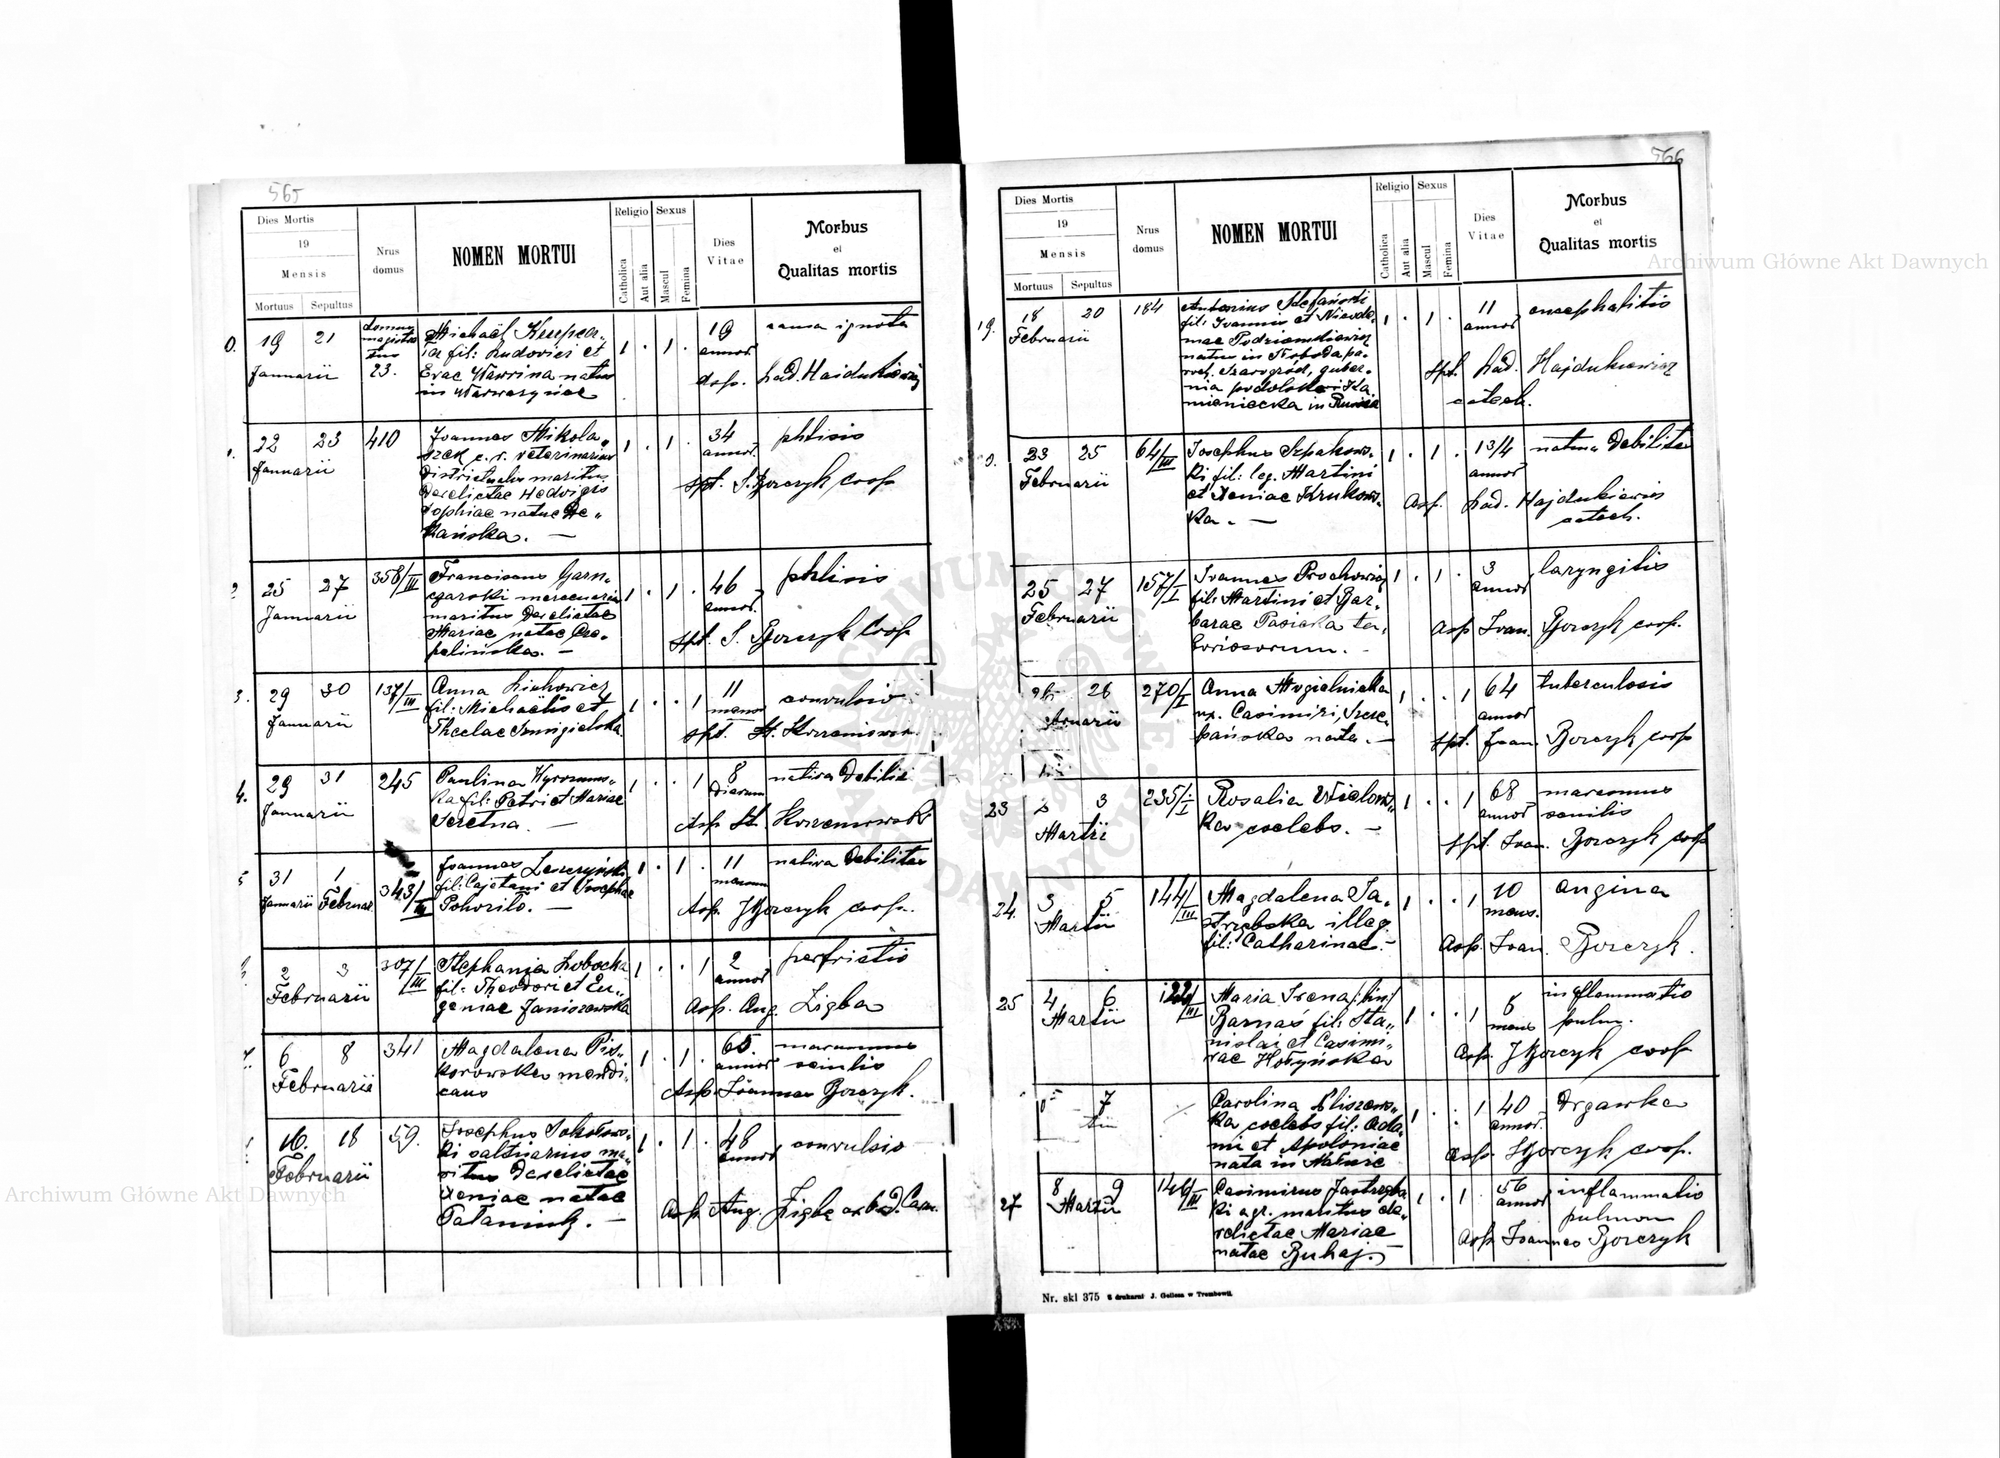 565
Dies Mortis
19
Mensis
Mortuus
Sepultus
Nrus
domus
NOMEN MORTUI
Religio
Catholica
Aut alia
Sexus
Mascul
Femina
Dies
Vitae
Morbus
et
Qualitas mortis
19 21
Januarii
23.
Michaël
fil: Ludovici et
Evae Wawrina natus
in
1 . 1 .
19
annor
causa ignota
Lad. Hajdukiewicz
22 23
Januarii
410
Joannes Mikola„
szek c. r. veterinarius
districtualis maritus
derelictae Hedvigis
Sophiae natae De„
kańska. —
1 . 1 .
34
annor.
phtisis
spt. S. Borczyk coop
25 27
Januarii
358/III
Franciscus Garn„
carski mercenarius
maritus derelictae
Mariae natae Cze„
palińska. —
1 . 1 .
46
annor.
phtisis
spt. S. Borczyk Coop
3.
29 30
Januarii
137/III
Anna Lichowicz
fil: Michaëlis et
Theclae
1 . . 1
11
mens
convulsio
spt. St.
4.
29 31
Januarii
245
Paulina
ka fil: Petri et Mariae
Seretna. —
1 . . 1
8
dierum
nativa debilit
Asp. St.
5
31 1
Januarii Februar
343/III
Joannes Leszczyński
fil: Cajetani et Josephae
Pohorilo. —
1 . 1 .
11
mensum
nativa debilitas
Asp. J Borczyk coop.
2 3
Februarii
307/III
Stephania Lobocka
fil: Theodori et Eu„
geniae Janiszewska
1 . . 1
2
annor
perfrictio
Asp. Aug. Ligba
6 8
Februarii
341
Magdalena Pis„
korowska mendi„
cans
1 . 1 .
65.
annor
marasmus
senilis
Asp. Joannes Borczyk.
16. 18
Februarii
59.
Josephus Sokołows„
ki saltuarius ma„
ritus derelictae
Xeniae natae
1 . 1 .
48
annor
convulsio
Asp. Aug. Ligba
566
Dies Mortis
19
Mensis
Mortuus
Sepultus
Nrus
domus
NOMEN MORTUI
Religio
Catholica
Aut alia
Sexus
Mascul
Femina
Dies
Vitae
Morbus
et
Qualitas mortis
19.
18 20
Februarii
184
Antonius Stefański
fil: Joannis et
natus in Słoboda pa„
roch. Szarogród, guber„
nia podolska
in Russia
1 . 1 .
11
annor
encephalitis
spt. Lad. Hajdukiewicz
catech.
23 25
Februarii
64/III
Josephus Szpakows„
ki fil: leg. Martini
et Xeniae Krukows„
ka. —
1 . 1 .
13/4
annor
debilitas
Asp. Lad. Hajdukiewicz
catech.
25 27
Februarii
157/I
Joannes Prochowicz
fil: Martini et Bar„
barae Pasieka la„
boriosorum. —
1 . 1 .
3
annor
laryngitis
Asp Joan. Borczyk coop.
26
270/I
Anna Mogielnicka
ux. Casimiri, Szcze„
pańska nata. —
1 . . 1
64
annor
tuberculosis
spt. Joan. Borczyk coop
23
2 3
Martii
235/I
Rosalia Wielows„
ka coelebs. —
1 . . 1
68
annor
marasmus
senilis
spt. Joan. Borczyk coop
24.
3 5
Martii
144/III
Magdalena Ja„
strzębska illeg.
fil: Catharinae. —
1 . . 1
10
mens.
angina
Asp. Joan. Borczyk.
25
4 6
Martii
Maria Irena /bin/
Barnaś fil: Sta„
nislai et Casimi„
rae Hołyńska
1 . . 1
6
mens
inflammatio
pulm.
Asp. J Borczyk coop
7
Carolina Kliszews„
ka coelebs fil: Ada„
mi et Apoloniae
nata in
1 . . 1
40
annor.
Drgawka
Asp. Borczyk coop.
27
8 9
Martii
146/III
Casimirus Jastrzębs
ki agr. maritus de„
relictae Mariae
natae Buhaj. —
1 . 1 .
56
annor
inflammatio
pulmon
Asp. Joannes Borczyk
Nr. skl 375 Z drukarni J. Gellesa w Trembowli.
Archiwum Główne Akt Dawnych
Archiwum Główne Akt Dawnych
ARCHIWUM GŁÓWNE AKT DAWNYCH